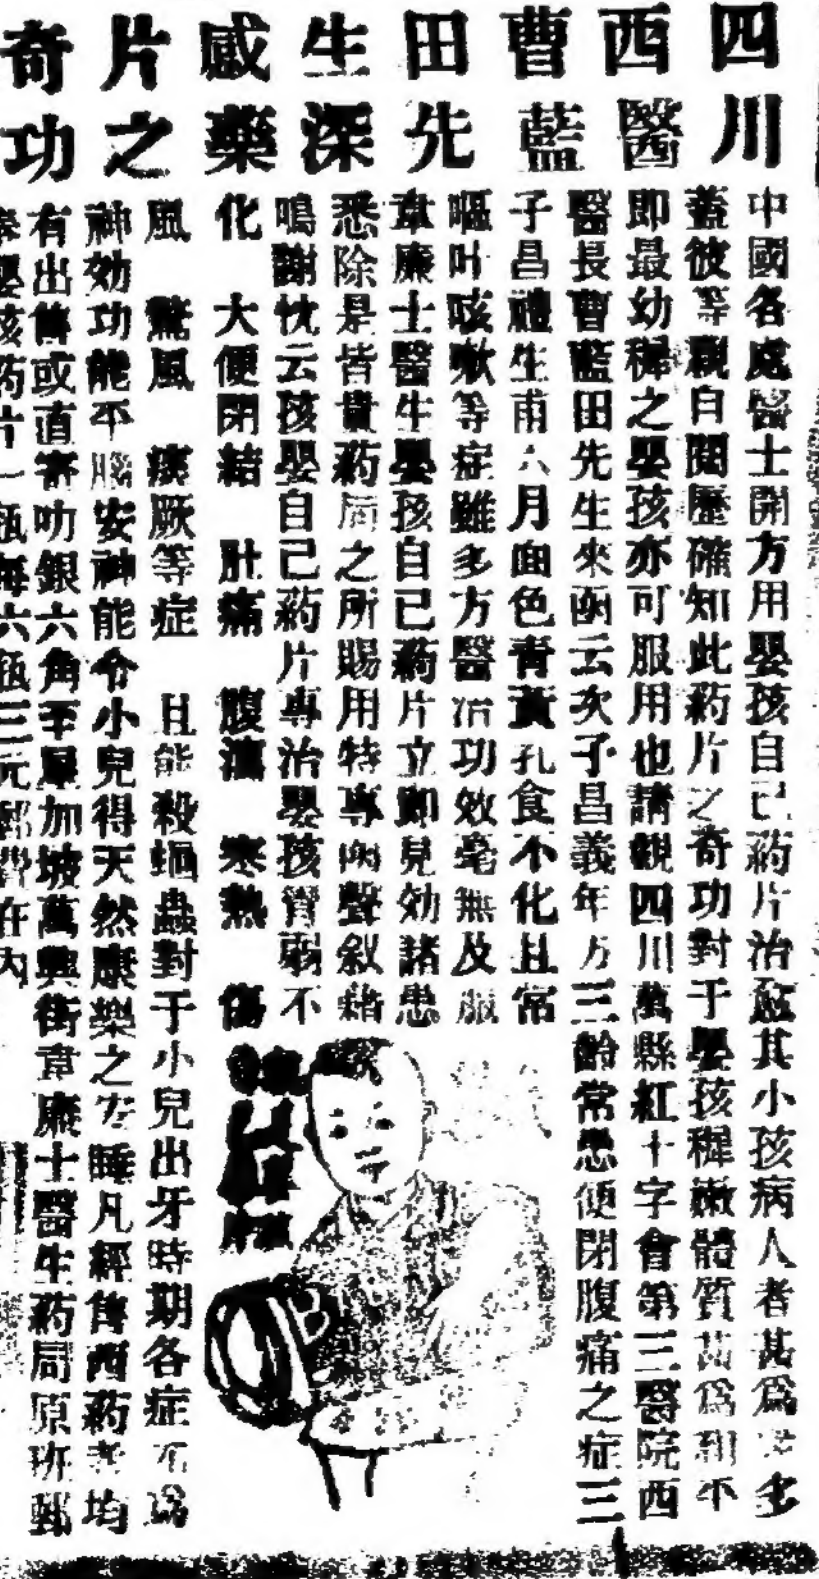 四川
西醫
曹藍
田先
生深
感藥
片之
奇功
中國各處醫士開方用嬰孩自己药片治愈其小孩病人者甚爲多
蓋彼等親自閱歷確知此药片之奇功對于嬰孩稺嫩體質甚爲和平
即最幼穉之嬰孩亦可服用也請觀四川萬縣紅十字會第三醫院西
醫長曹藍田先生來函云次子昌義年方三齡常患便閉腹痛之症三
子昌禮生甫六月面色青黃乳食不化且常
嘔吐咳嗽等症雖多方醫治功效毫無及服
韋廉士醫生嬰孩自己药片立卽見効諸患
悉除是皆貴药局之所賜用特專函聲叙藉
鳴謝忱云孩嬰自己药片專治嬰孩胃弱不
化 大便閉結 肚痛 腹瀉 寒熱 傷
風 驚風 痰厥等症 且能殺蛔蟲對于小兒出牙時期各症不爲
神効功能平腦安神能令小兒得天然康樂之安睡凡經售西药者均
有出售或直寄叻銀六角至星加坡萬興街韋廉士醫生药局原班郵
奉嬰孩药片一瓶每六瓶三元郵費在內